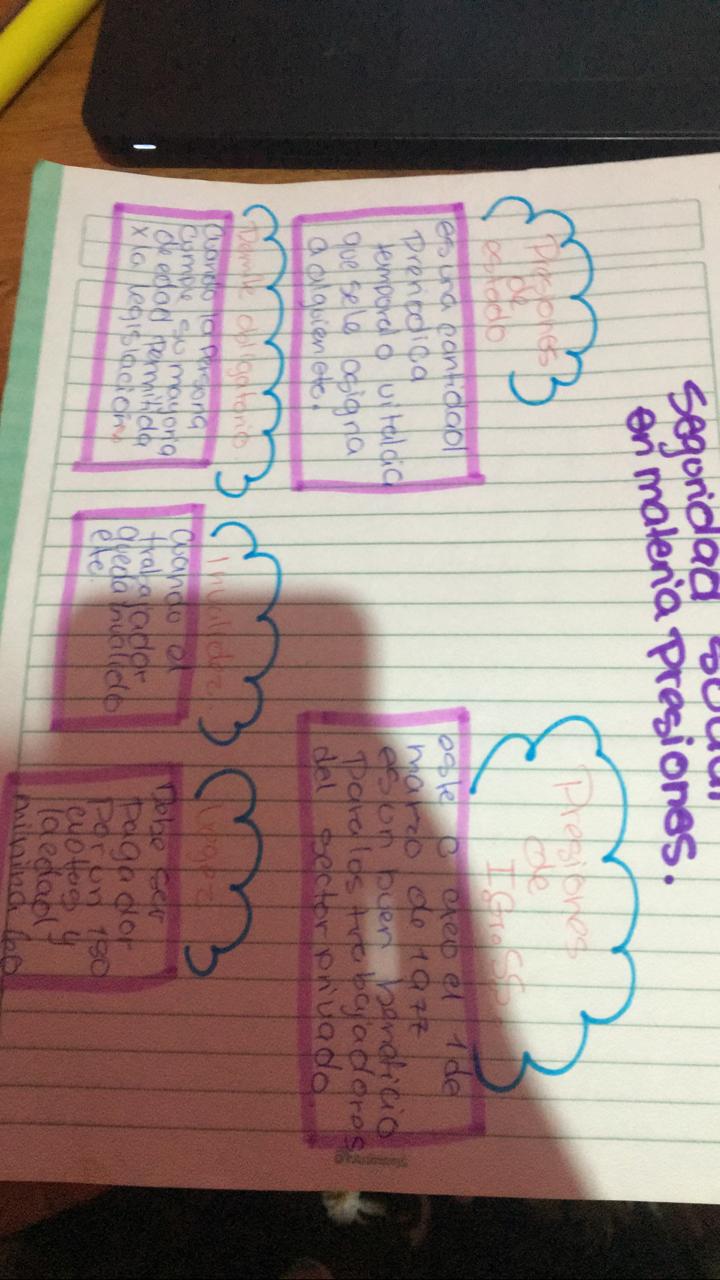 seguridad social
en materia Presiones.
Presiones
de
estado
es una cantidad
Preriodica
temporal o vitalcia
que se le asigna
a alguien etc.
Presiones
de
IGroSS.
este C creo el 1 de
marzo de 1977
es un buen bendicio
Para los trabajadores
del sector privado
obligatorio
Cuando la Persona
cumple su mayoria
de edad Permitida
x la legislación
Invalidez.
Cuando el
trabajador
queda invalido
etc.
Debe ser
Pagador
Por un 180
cuotas y
la edad